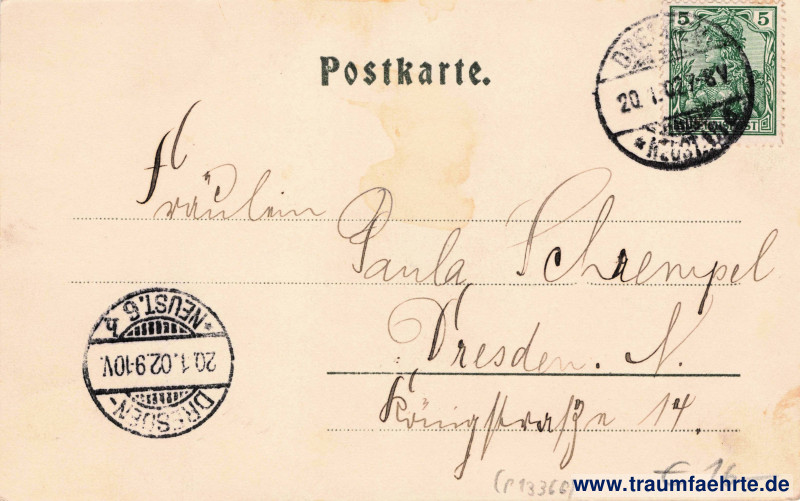 Postkarte.
5 5
DRESDEN
20.1.02.7-8V
*NEUST.
Fräulein
Paula Schrempel
Dresden. N.
Königstraße 14.
*NEUST. 6 h
20.1.02.9-10V.
DRESDEN-
(P13366)
€ 16.-
www.traumfaehrte.de